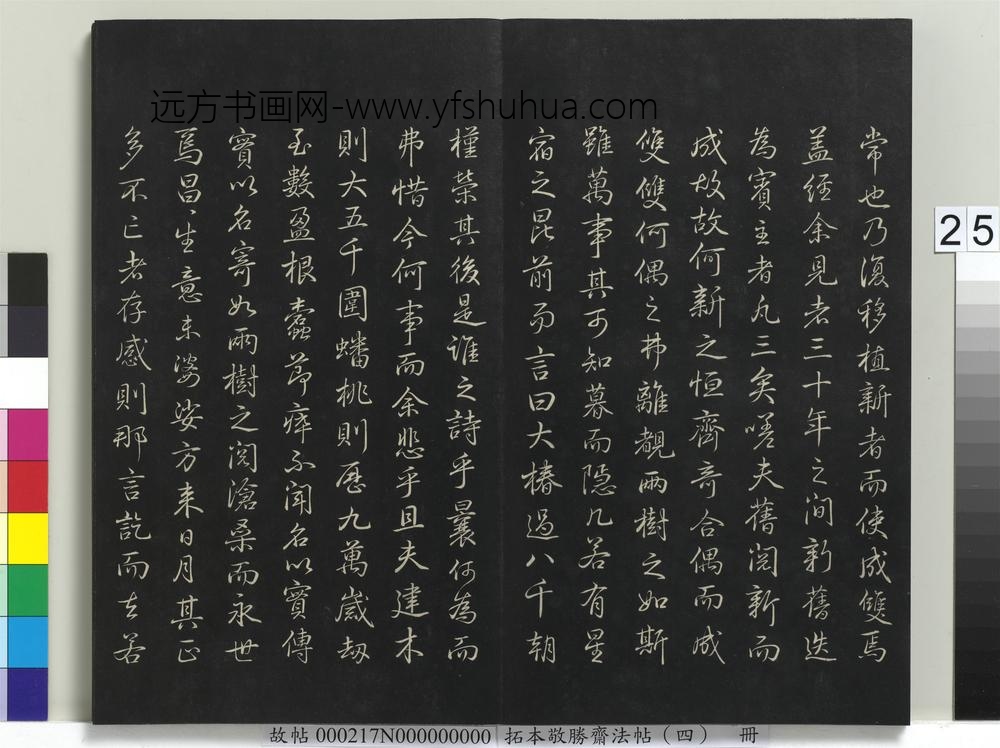 远方书画网-www.yfshuhua.com
常也乃復移植新者而使成雙焉
盖經余見者三十年之间新舊迭
為賓主者凡三矣嗟夫舊閱新而
成故故何新之恒齊奇合偶而成
雙雙何偶之弗離覩兩樹之如斯
雖萬事其可知暮而隐几若有星
宿之昆前而言曰大椿過八千朝
槿榮其後是誰之詩乎曩何為而
弗惜今何事而余悲乎且夫建木
則大五千圍蟠桃則歷九萬歲劫
至數盈根蠹節瘁不聞名以實傳
實以名寄如兩樹之閱滄桑而永世
焉昌昌生意未婆娑方来日月其正
多不亡者存感則那言訖而去若
25
故帖 000217N000000000 拓本敬勝齋法帖（四） 冊